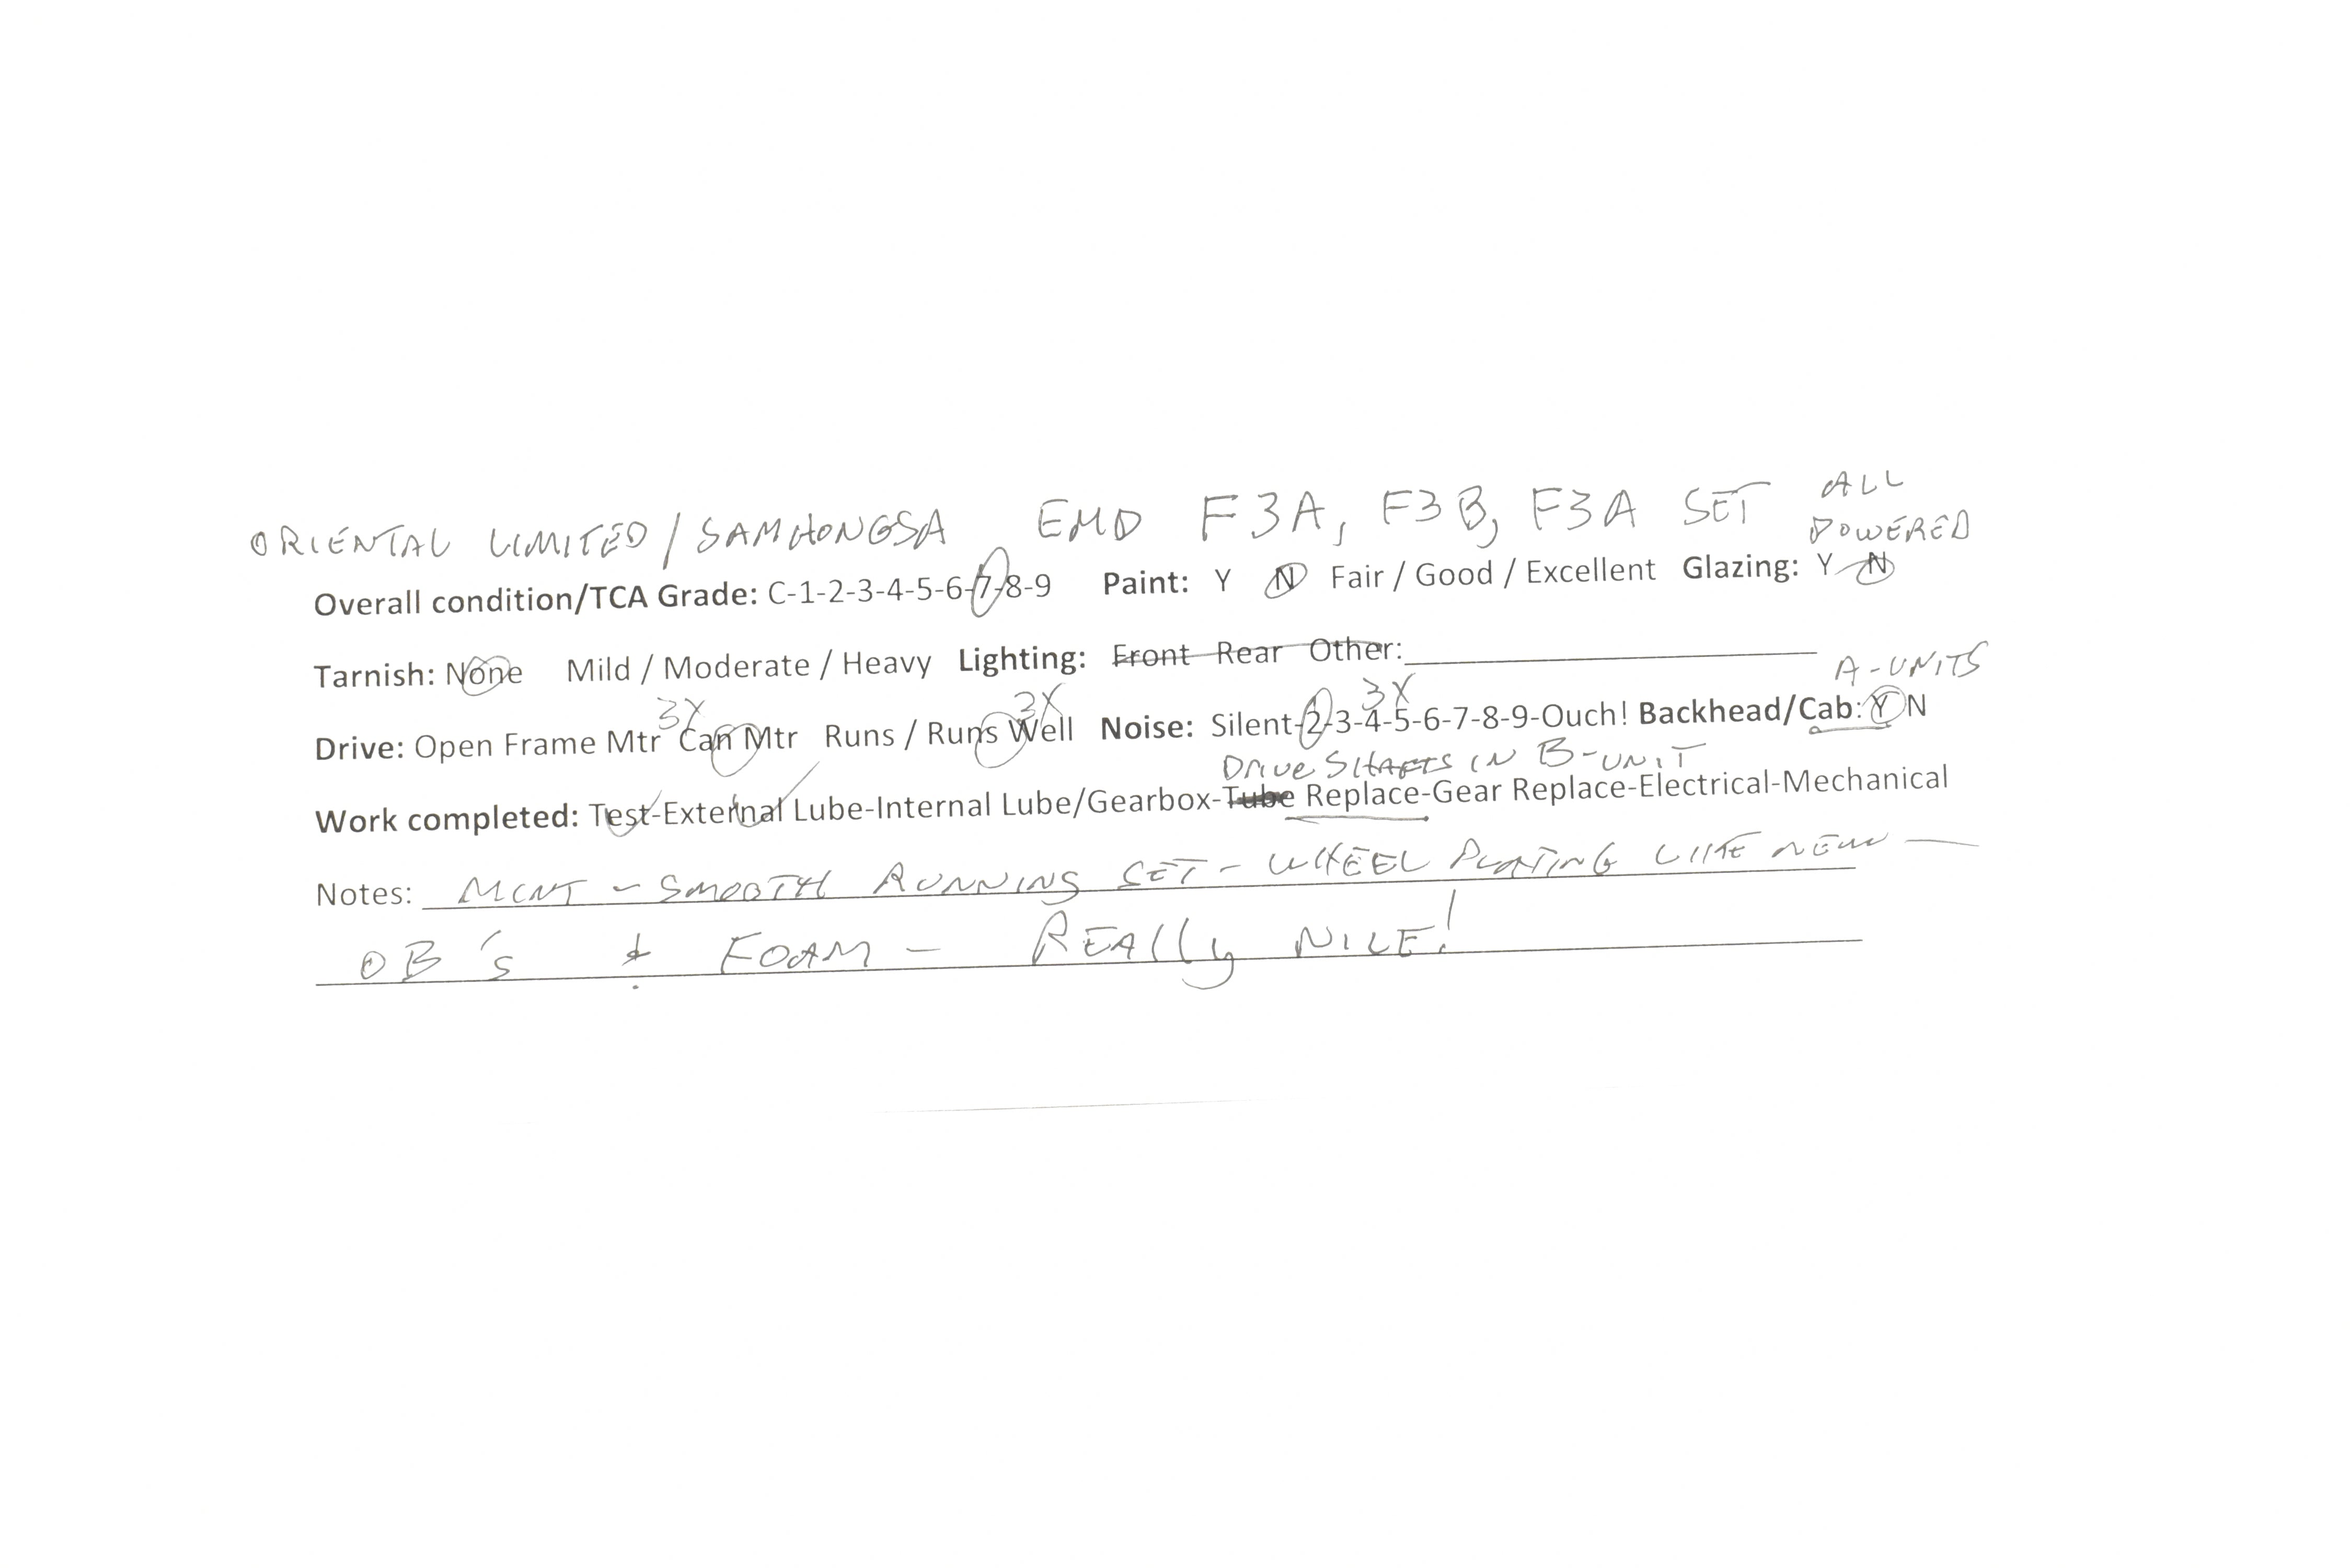 ORIENTAL LIMITED / SAMHONGSA EMD F3A, F3B, F3A SET ALL POWERED
Overall condition/TCA Grade: C-1-2-3-4-5-6-7-8-9 Paint: Y N Fair / Good / Excellent Glazing: Y N
Tarnish: None Mild / Moderate / Heavy Lighting: Front Rear Other:
A-UNITS
3X 3X 3X
Drive: Open Frame Mtr Can Mtr Runs / Runs Well Noise: Silent-2-3-4-5-6-7-8-9-Ouch! Backhead/Cab: Y N
DRIVE SHAFTS IN B-UNIT
Work completed: Test-External Lube-Internal Lube/Gearbox-Tube Replace-Gear Replace-Electrical-Mechanical
Notes: MINT - SMOOTH RUNNING SET - WHEEL PLATING LIKE NEW —
OB's & FOAM - REALLY NICE!